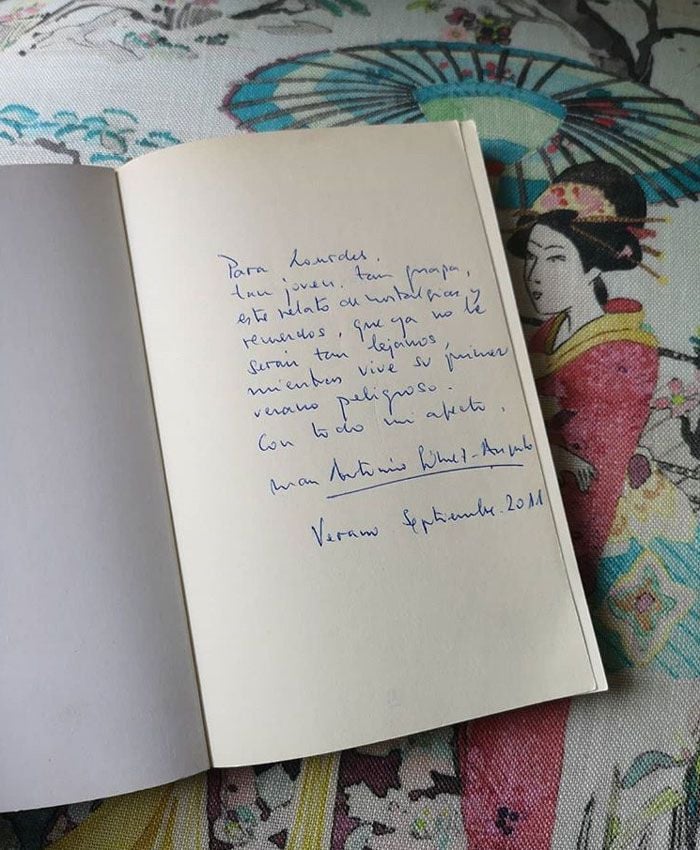 Para Lourdes,
tan joven, tan guapa,
este relato de nostalgias y
recuerdos, que ya no le
serán tan lejanos,
mientras vive su primer
verano peligroso.
Con todo mi afecto,
Juan Antonio Gómez-Angulo
Verano Septiembre. 2011